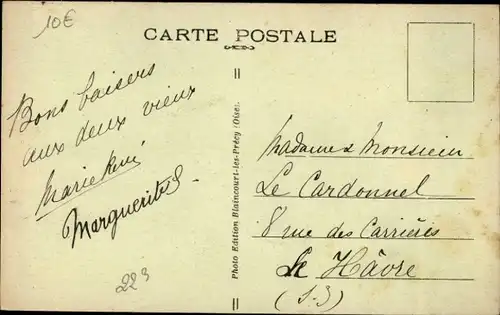 10€
CARTE POSTALE
Bons baisers
aux deux vieux
Marie René
Marguerite
223
Photo Edition Blaincourt-les-Précy (Oise).
Madame & Monsieur
Le Cardonnel
8 rue des Carrières
Le Hâvre
(S-I)